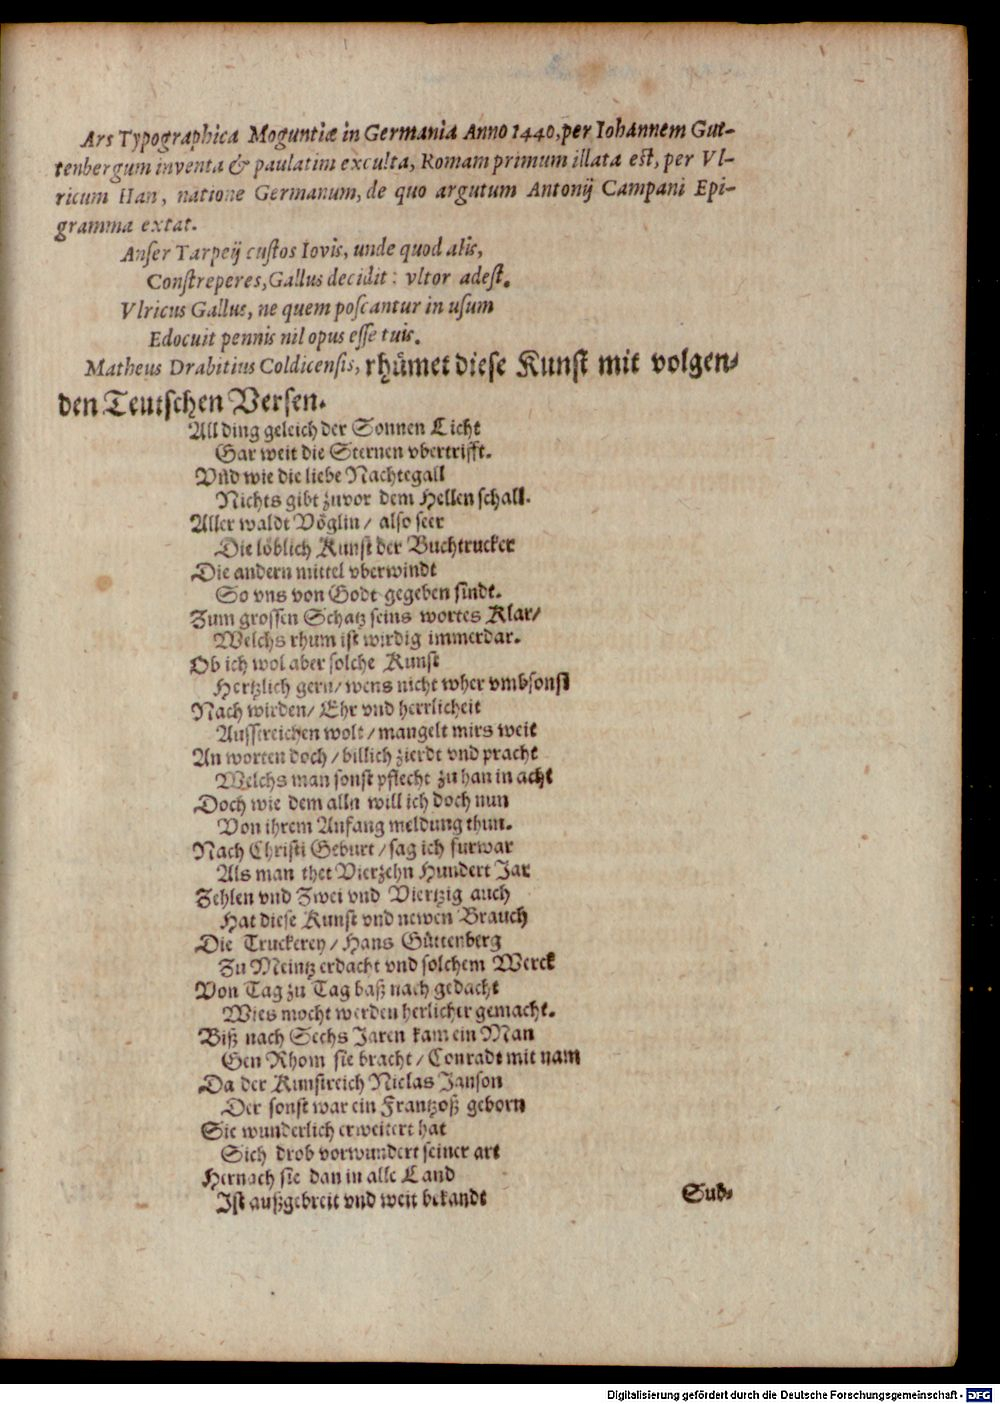 Ars Typographica Moguntiæ in Germania Anno 1440, per Iohannem Gut-
tenbergum inventa & paulatim exculta, Romam primum illata est, per Vl-
ricum Han, natione Germanum, de quo argutum Antonij Campani Epi-
gramma extat.
Anser Tarpeij custos Iovis, unde quod alis,
Constreperes, Gallus decidit: vltor adest.
Vlricus Gallus, ne quem poscantur in usum
Edocuit pennis nil opus esse tuis.
Matheus Drabitius Coldicensis, rhůmet diese Kunst mit volgen-
den Teutschen Versen.
All ding geleich der Sonnen Licht
Gar weit die Sternen vbertrifft.
Vnd wie die liebe Nachtegall
Nichts gibt zuvor dem Hellen schall.
Aller waldt Vöglin / also seer
Die löblich Kunst der Buchtrucker
Die andern mittel vberwindt
So vns von Godt gegeben sindt.
Zum grossen Schatz seins wortes Klar /
Welchs rhum ist wirdig immerdar.
Ob ich wol aber solche Kunst
Hertzlich gern / wens nicht wher vmbsonst
Nach wirden / Ehr vnd herrlicheit
Ausstreichen wolt / mangelt mirs weit
An worten doch / billich zierdt vnd pracht
Welchs man sonst pflecht zu han in acht
Doch wie dem alln will ich doch nun
Von ihrem Anfang meldung thun.
Nach Christi Geburt / sag ich furwar
Als man thet Vierzehn Hundert Jar
Zehlen vnd Zwei vnd Viertzig auch
Hat diese Kunst vnd newen Brauch
Die Truckerey / Hans Güttenberg
Zu Meintz erdacht vnd solchem Werck
Von Tag zu Tag baß nach gedacht
Wies mocht werden herlicher gemacht.
Biß nach Sechs Jaren kam ein Man
Gen Rhom sie bracht / Conradt mit nam
Da der Kunstreich Niclas Janson
Der sonst war ein Frantzoß geborn
Sie wunderlich erweitert hat
Sich drob vorwundert seiner art
Hernach sie dan in alle Land
Ist außgebreit vnd weit bekandt
Sud-
Digitalisierung gefördert durch die Deutsche Forschungsgemeinschaft - DFG